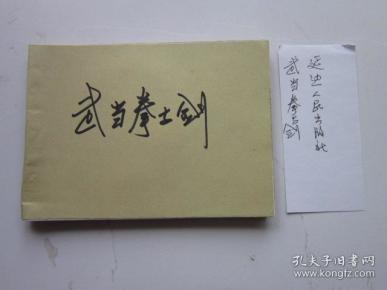 武当拳士剑
延边人民出版社
武当拳士剑
孔夫子旧书网
www.kongfz.com